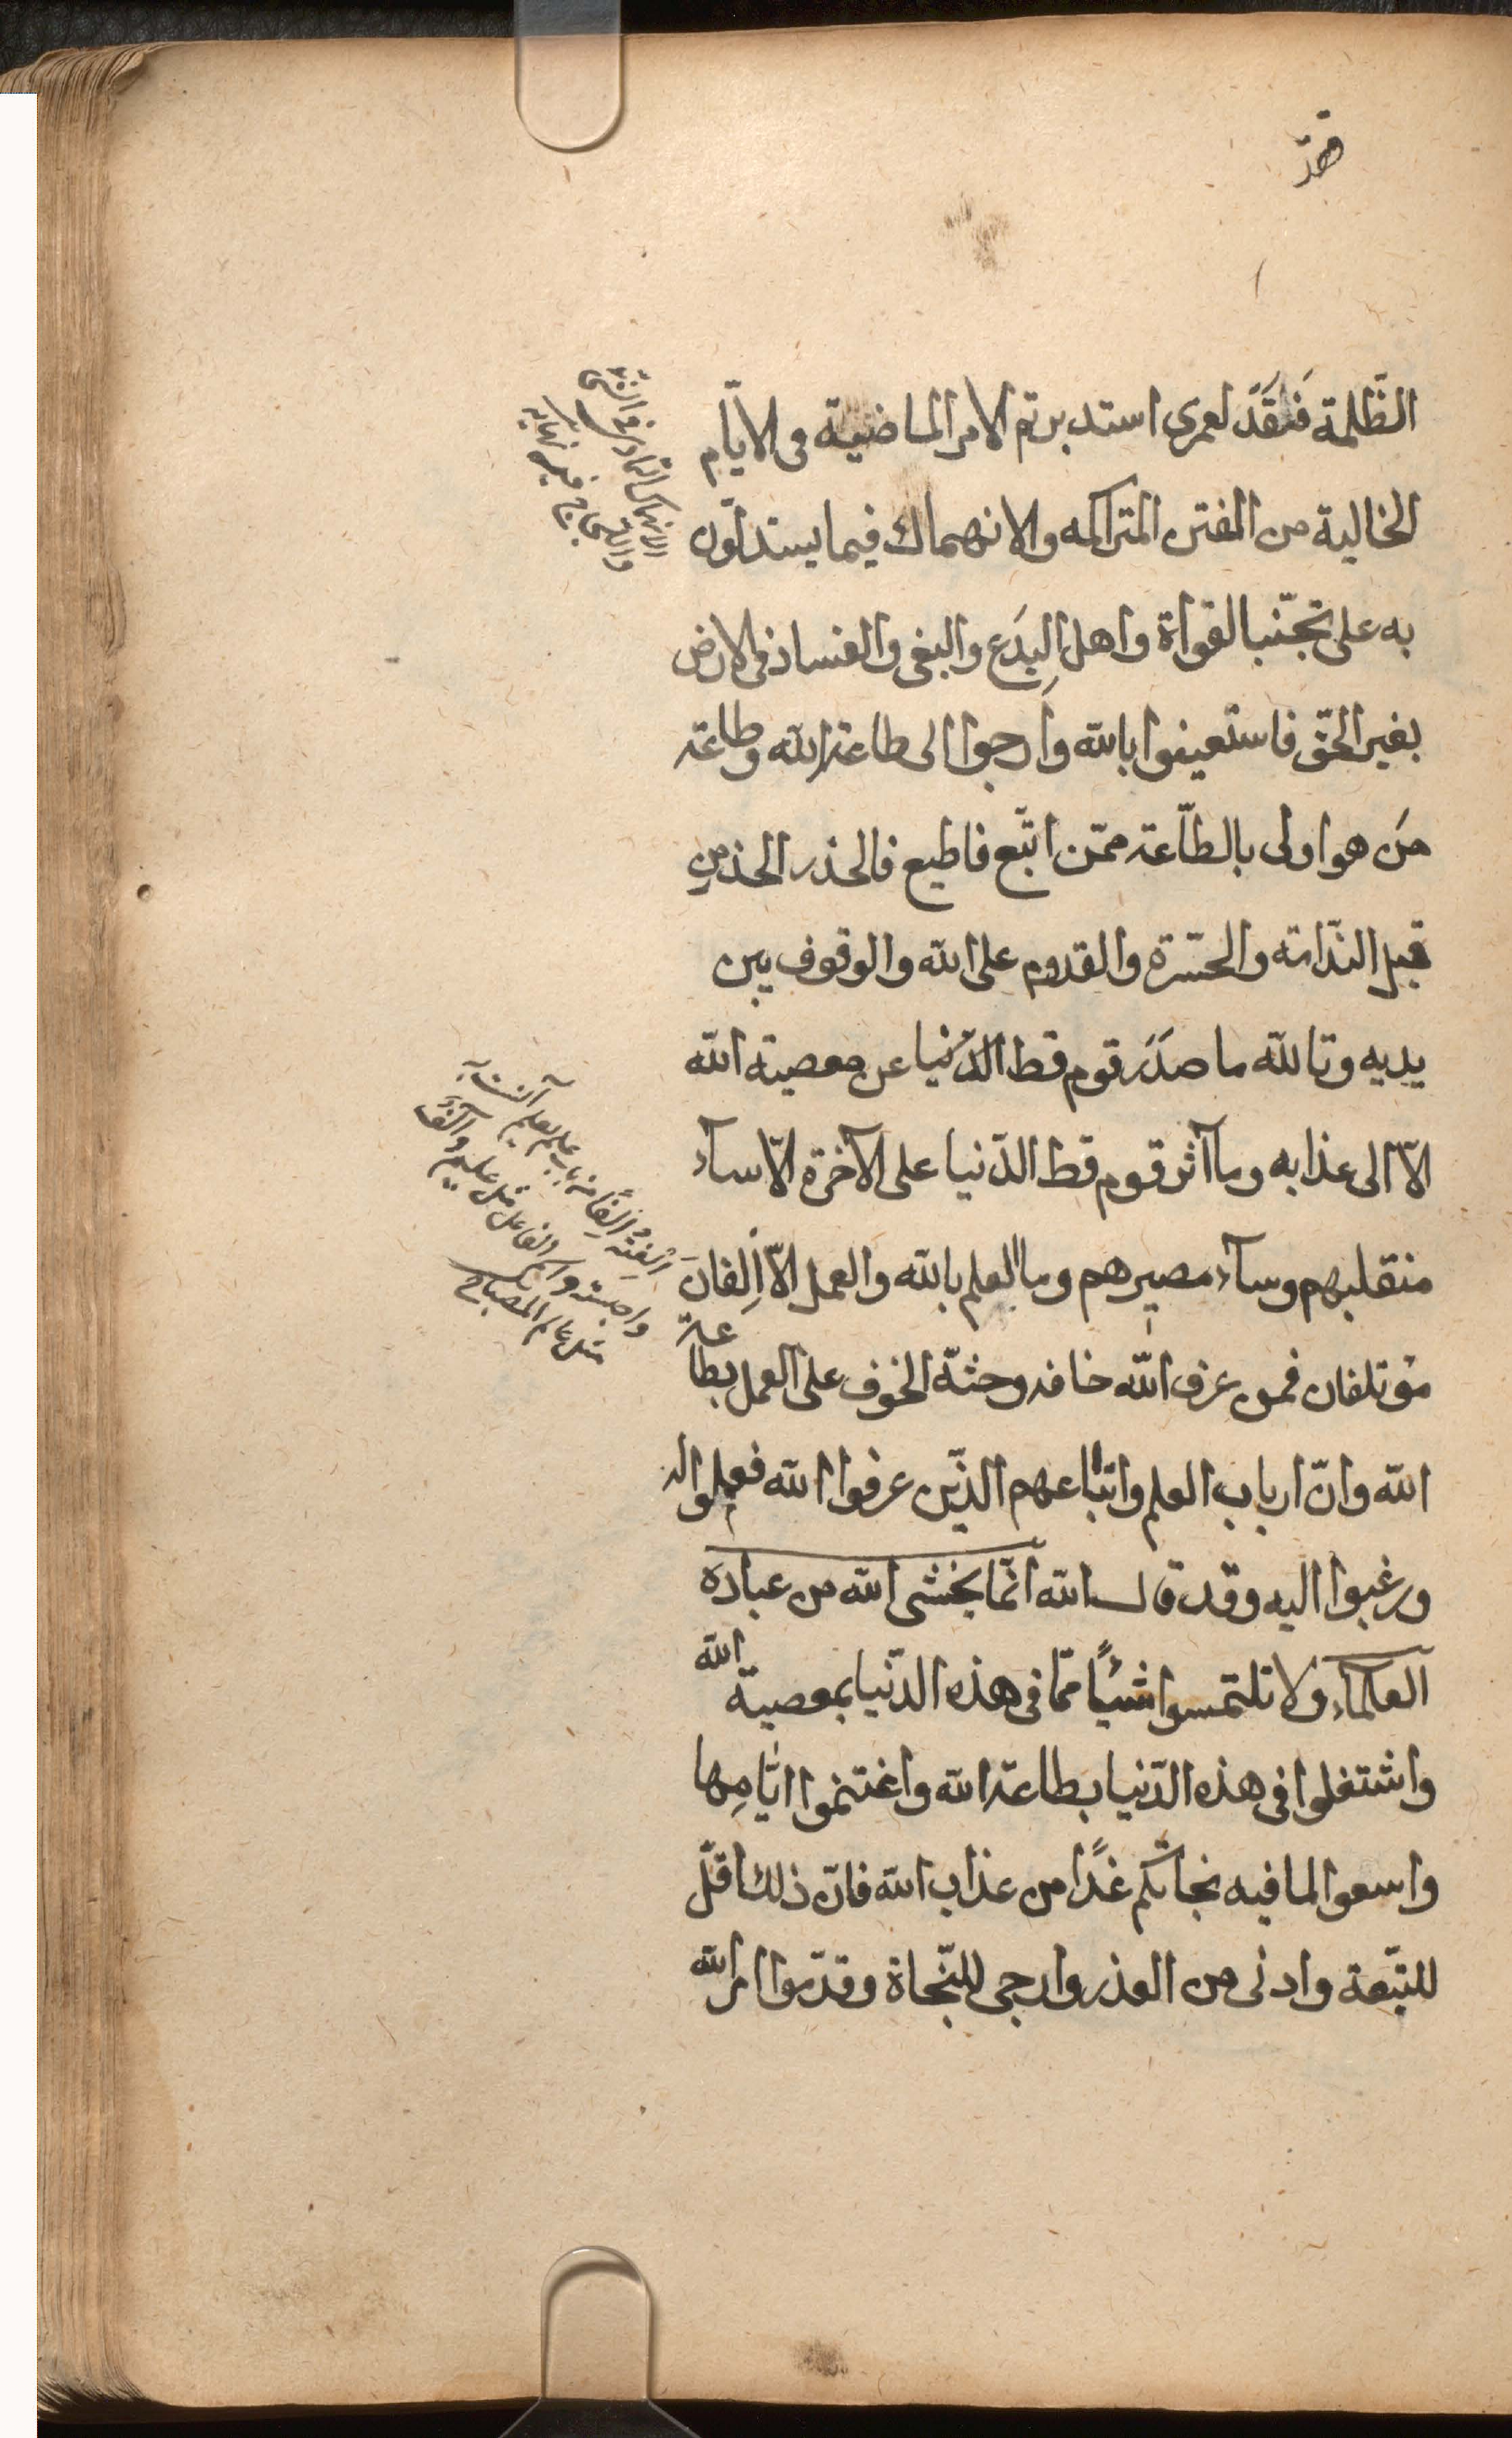 الظّلمة فَقَد لعمرى استدبرتم الامر الماضية فى الايّام
الخالية من الفتن المتراكمه والانهماك فيما يستدلّون
به على تجنّب الغواة واهل البِدَع والبغى والفساد فى الارض
بغير الحقّ فاستعينوا بالله وارجوا الى طاعة الله وطاعة
من هو اولى بالطّاعة ممّن اتّبع فاطيع فالحذر الحذر من
قبل النّدامة والحسرة والقدوم على الله والوقوف بين
يديه وتالله ما صَدَرَ قوم قط الدّنيا عن معصية الله
الّا الى عذابه وما آثر قوم قط الدّنيا على الآخرة الّا سآء
منقلبهم وسآء مصيرهم وما العلم بالله والعمل الّا اِلفانَ
مؤتلفان فمن عرف الله خافه وحثّه الخوف على العمل بطاعة
الله وانّ ارباب العلم واتباعهم الذّين عرفوا الله فعملوا له
ورغبوا اليه وقد قال الله انّما يخشى الله من عباده
العلمآء ولا تلتمسوا شيئًا ممّا فى هذه الدّنيا بمعصية الله
واشتغلوا فى هذه الدّنيا بطاعة الله واغتنموا ايّامِها
واسعوا لما فيه نجاتكم غدًا من عذاب الله فانّ ذلك اقلّ
للتّبعة وادنى من العذر وارجى للنّجاة وقدّموا امر الله
الانهماك التمادى فى الشئ
واللجاج فيه نهايه
اَلِفتُه اِلفًا من باب علم
مثل عالم المصباح